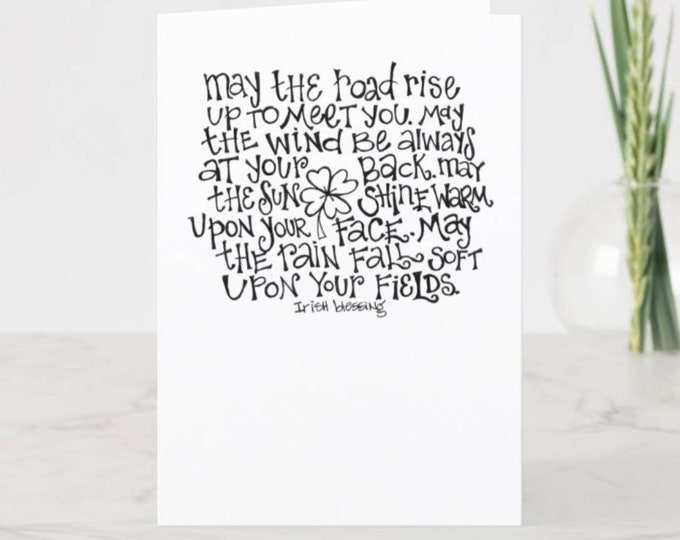 may the road rise
up to meet you. May
the wind be always
at your back. may
the sun shine warm
upon your face. May
the rain fall soft
upon your fields.
Irish blessing